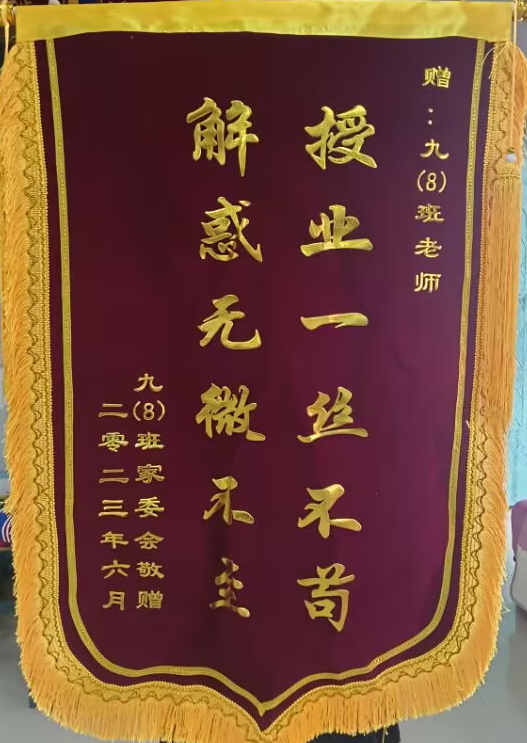 赠：九(8)班老师
授业一丝不苟
解惑无微不至
九(8)班家委会敬赠
二零二三年六月